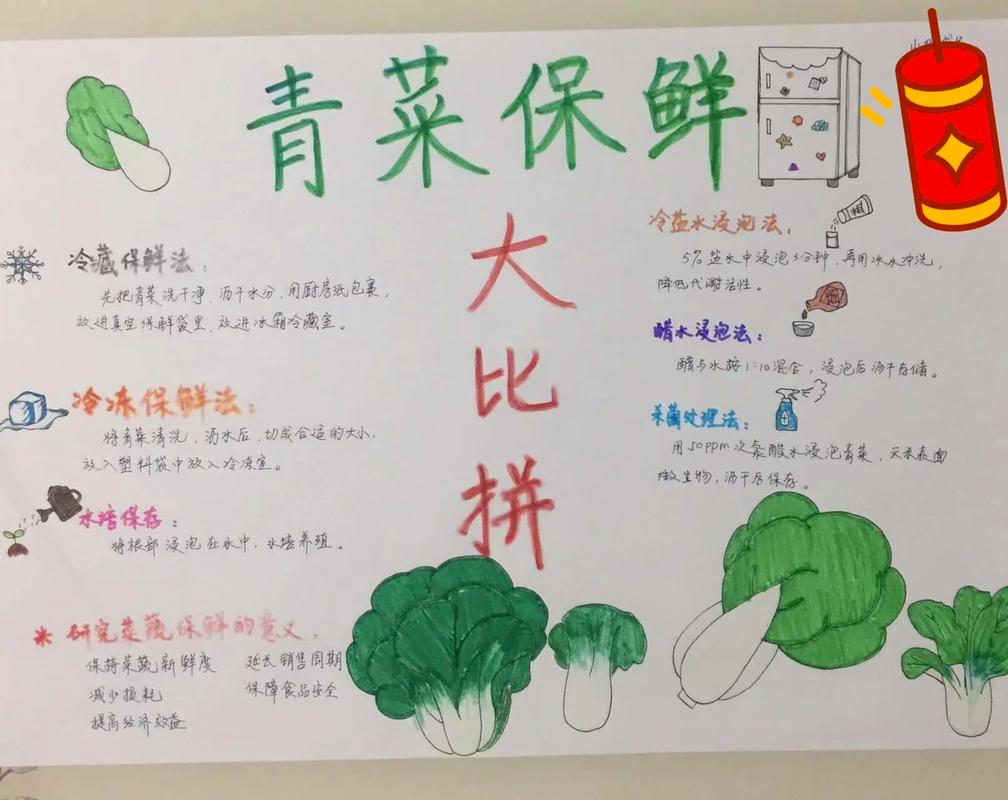 青菜保鲜
大比拼
冷藏保鲜法：
先把青菜洗干净，沥干水分，用厨房纸包裹，
放进真空保鲜袋里，放进冰箱冷藏室。
冷冻保鲜法：
将青菜清洗，沥水后，切成合适的大小，
放入塑料袋中放入冷冻室。
水培保存：
将根部浸泡在水中，水培养殖。
*研究菜蔬保鲜的意义：
保持菜蔬新鲜度 延长销售周期
减少损耗 保障食品安全
提高经济效益
冷盐水浸泡法：
5%盐水中浸泡3分钟，再用冰水冲洗，
降低代谢活性。
盐
醋水浸泡法：
醋与水按1:10混合，浸泡后沥干存储。
杀菌处理法：
用50ppm次氯酸水浸泡青菜，灭杀表面
微生物，沥干后保存。